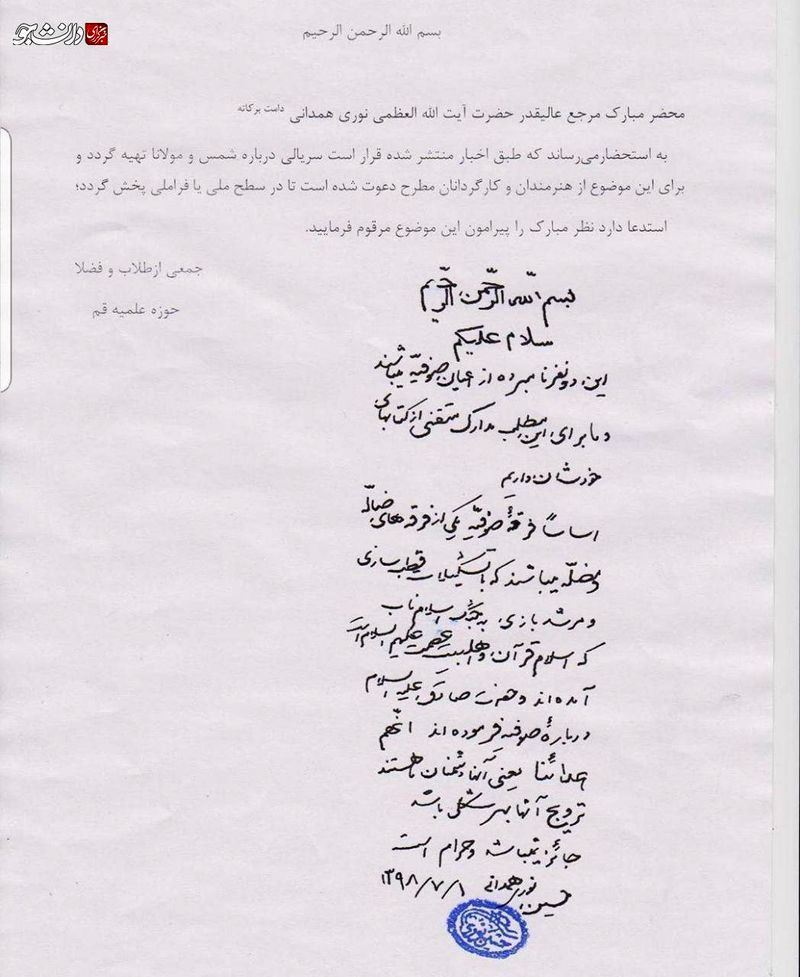 خبرگزاری دانشجو
بسم الله الرحمن الرحیم
محضر مبارک مرجع عالیقدر حضرت آیت الله العظمی نوری همدانی دامت برکاته
به استحضارمی‌رساند که طبق اخبار منتشر شده قرار است سریالی درباره شمس و مولانا تهیه گردد و
برای این موضوع از هنرمندان و کارگردانان مطرح دعوت شده است تا در سطح ملی یا فراملی پخش گردد؛
استدعا دارد نظر مبارک را پیرامون این موضوع مرقوم فرمایید.
جمعی ازطلاب و فضلا
حوزه علمیه قم
بسم الله الرحمن الرحیم
سلام علیکم
این دو نفر نامبرده از اعیان صوفیّه میباشند
و ما برای این مطلب مدارک متقنی از کتابهای
خودشان داریم
اساساً فرقهٔ صوفیّه یکی از فرقه های ضالّه
و مضلّه میباشند که با تشکیلات قطب سازی
و مرشد بازی به جنگ اسلام ناب
که اسلام قرآن و اهلبیت عصمت علیهم السلام است
آمده اند و حضرت صادق علیه السلام
دربارهٔ صوفیه فرموده اند انّهم
اعدائنا یعنی آنها دشمنان ما هستند
ترویج آنها بهر شکلی باشد
جائز نمیباشد و حرام است
حسین نوری همدانی ۱۳۹۸/۷/۱
حسین نوری